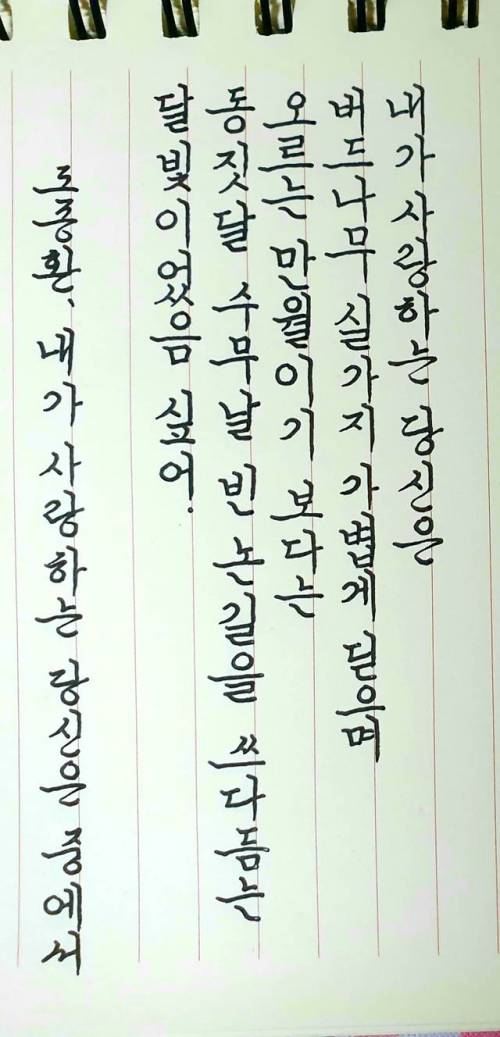 내가 사랑하는 당신은
버드나무 실가지 가볍게 딛으며
오르는 만월이기 보다는
동짓달 수무날 빈 논길을 쓰다듬는
달빛이었음 싶어.
도종환, 내가 사랑하는 당신은 중에서